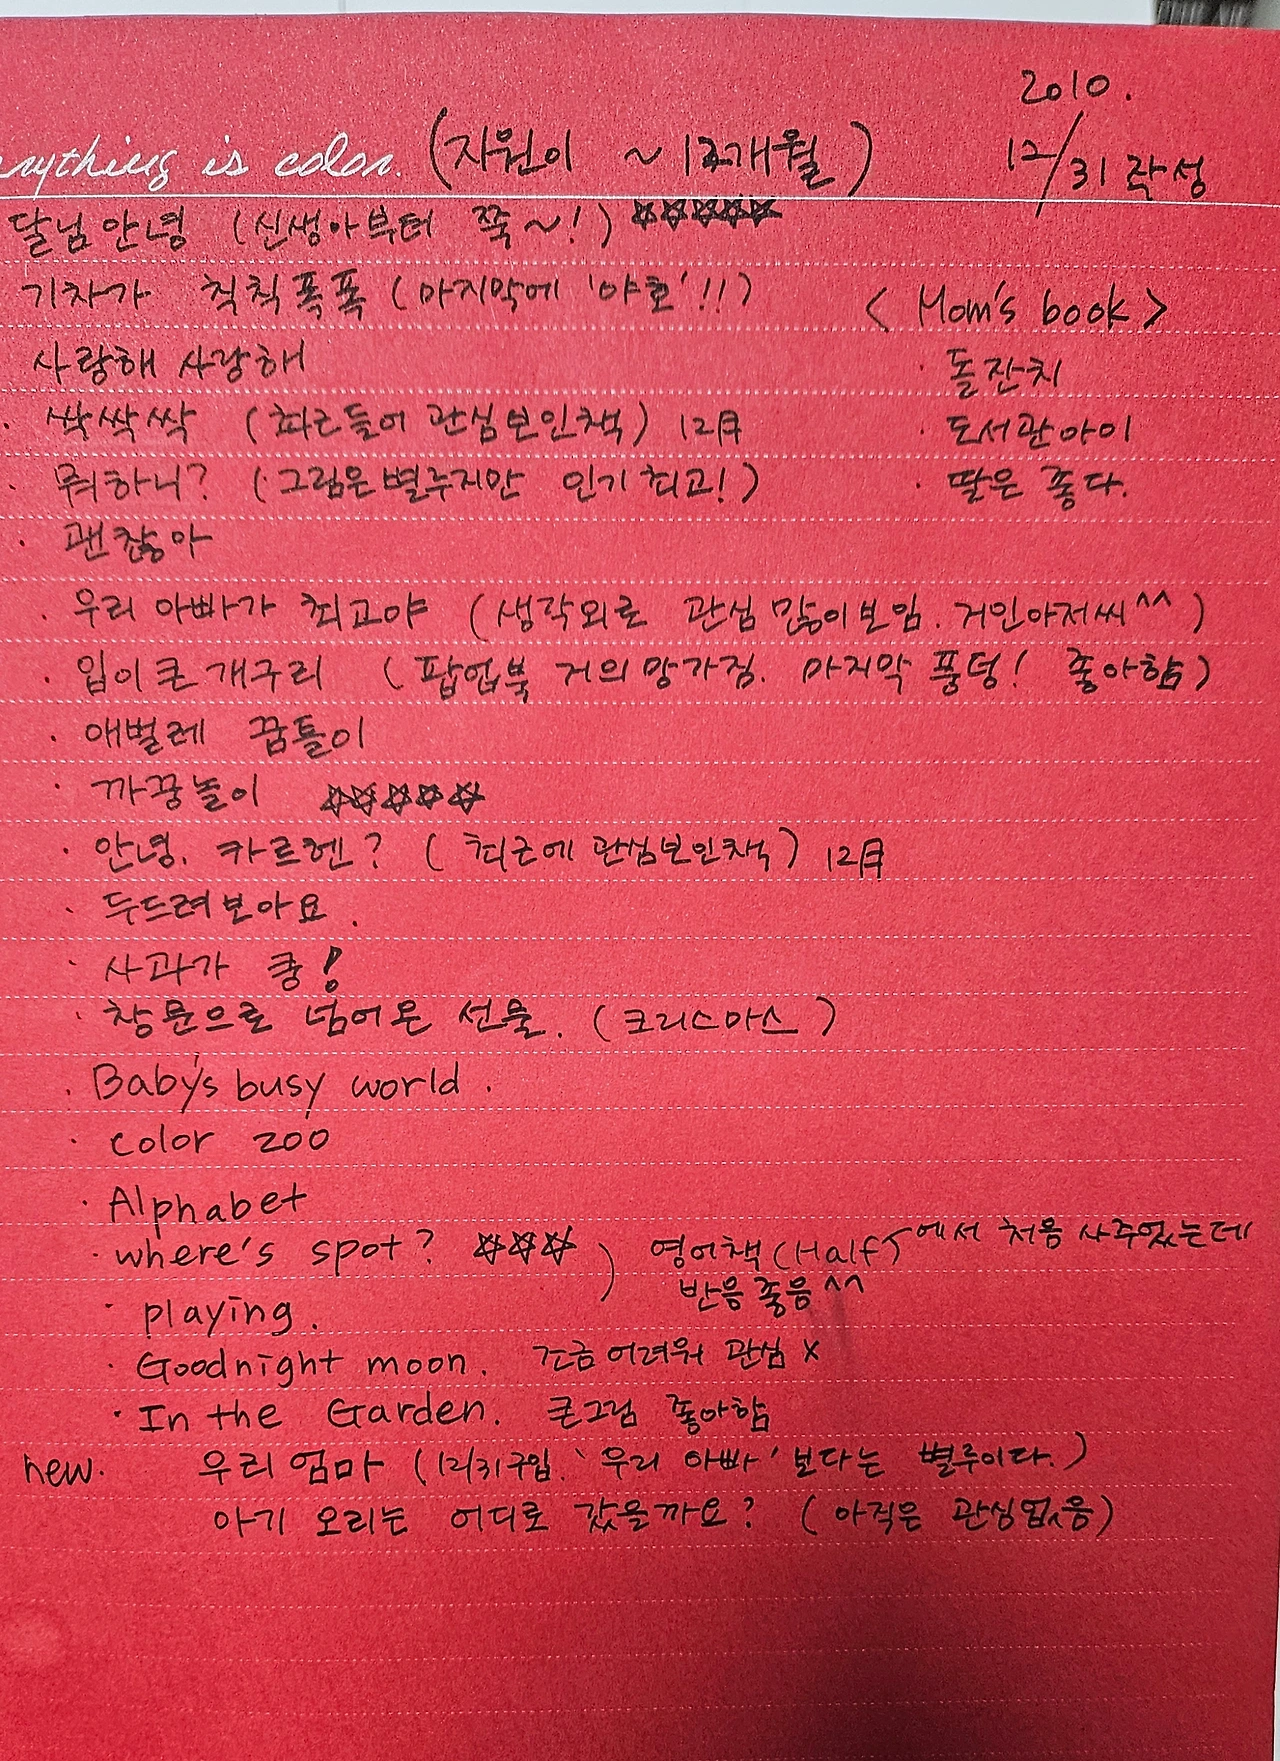 2010.
12/31 작성
erything is color. (자원이 ~12개월)
달님안녕 (신생아부터 쭉~!) ☆☆☆☆☆
기차가 칙칙폭폭 (마지막에 '야호'!!)
< Mom's book >
사랑해 사랑해
· 돌잔치
· 싹싹싹 (최근들어 관심보인책) 12月
· 도서관아이
· 뭐하니? (그림은별루지만 인기최고!)
· 딸은 좋다.
· 괜찮아
· 우리 아빠가 최고야 (생각외로 관심많이보임. 거인아저씨^^)
· 입이큰개구리 (팝업북 거의망가짐. 마지막 풍덩! 좋아함)
· 애벌레 꿈틀이
· 까꿍놀이 ☆☆☆☆☆
· 안녕. 카르멘? (최근에 관심보인책) 12月
· 두드려보아요.
· 사과가 쿵!
· 창문으로 넘어온 선물. (크리스마스)
· Baby's busy world.
· color zoo
· Alphabet
· where's spot? ☆☆☆ ) 영어책(Half)에서 처음 사주었는데
· playing. 반응좋음^^
· Goodnight moon. 조금어려워 관심 x
· In the Garden. 큰그림 좋아함
new. 우리엄마 (12/31구입. '우리 아빠'보다는 별루이다.)
아기 오리는 어디로 갔을까요? (아직은 관심없음)